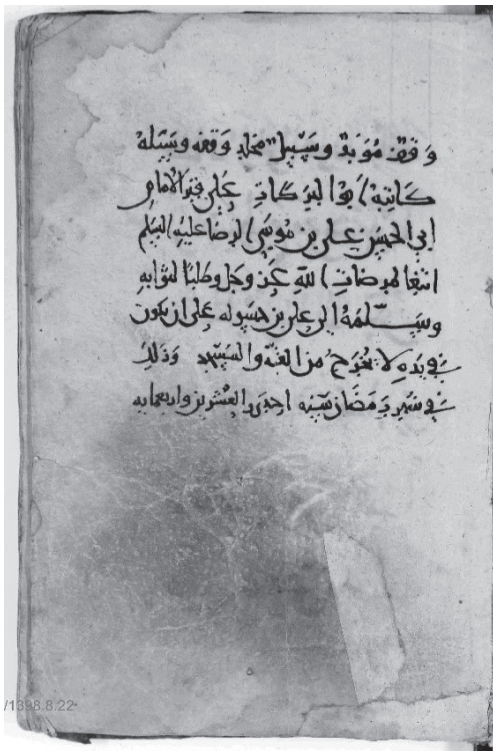 وقف مؤبد وسبيل مخلد وقفه وسبله
كاتبه ابو البركات على قبر الامام
ابي الحسن على بن موسى الرضا عليه السلم
ابتغا لمرضات الله عز وجل وطلبا لثوابه
وسلمه الى على بن حسوله على ان يكون
في يده لا يخرج من القبه والمشهد وذلك
في شهر رمضان سنه احدى والعشرين واربعمايه
/1398.8.22